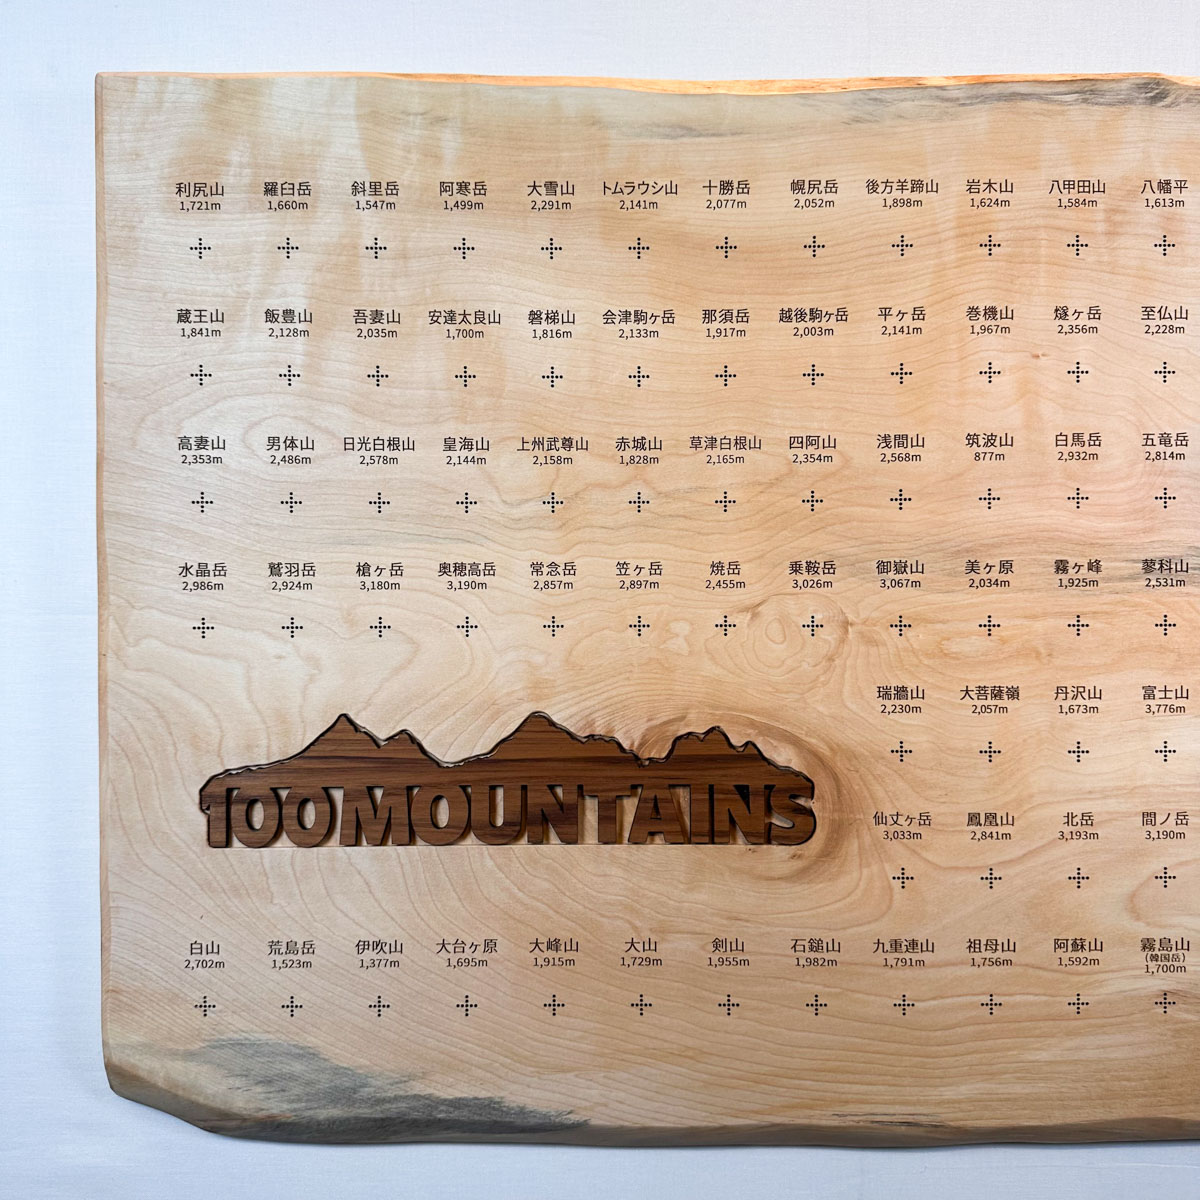 利尻山 羅臼岳 斜里岳 阿寒岳 大雪山 トムラウシ山 十勝岳 幌尻岳 後方羊蹄山 岩木山 八甲田山 八幡平
1,721m 1,660m 1,547m 1,499m 2,291m 2,141m 2,077m 2,052m 1,898m 1,624m 1,584m 1,613m
蔵王山 飯豊山 吾妻山 安達太良山 磐梯山 会津駒ヶ岳 那須岳 越後駒ヶ岳 平ヶ岳 巻機山 燧ヶ岳 至仏山
1,841m 2,128m 2,035m 1,700m 1,816m 2,133m 1,917m 2,003m 2,141m 1,967m 2,356m 2,228m
高妻山 男体山 日光白根山 皇海山 上州武尊山 赤城山 草津白根山 四阿山 浅間山 筑波山 白馬岳 五竜岳
2,353m 2,486m 2,578m 2,144m 2,158m 1,828m 2,165m 2,354m 2,568m 877m 2,932m 2,814m
水晶岳 鷲羽岳 槍ヶ岳 奥穂高岳 常念岳 笠ヶ岳 焼岳 乗鞍岳 御嶽山 美ヶ原 霧ヶ峰 蓼科山
2,986m 2,924m 3,180m 3,190m 2,857m 2,897m 2,455m 3,026m 3,067m 2,034m 1,925m 2,531m
瑞牆山 大菩薩嶺 丹沢山 富士山
2,230m 2,057m 1,673m 3,776m
100MOUNTAINS
仙丈ヶ岳 鳳凰山 北岳 間ノ岳
3,033m 2,841m 3,193m 3,190m
白山 荒島岳 伊吹山 大台ヶ原 大峰山 大山 剣山 石鎚山 九重連山 祖母山 阿蘇山 霧島山
(韓国岳)
2,702m 1,523m 1,377m 1,695m 1,915m 1,729m 1,955m 1,982m 1,791m 1,756m 1,592m 1,700m